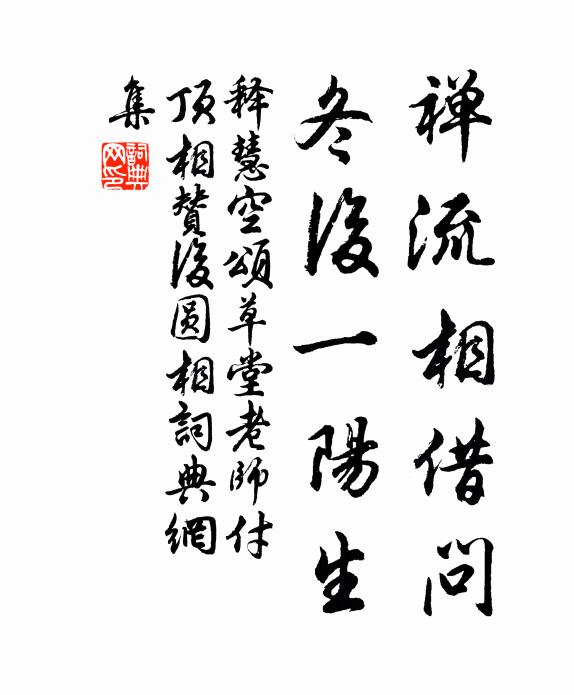 禅流相借问
冬後一陽生
释慧空頌草堂老師付
頂相賛後圆相詞典網
集
詞典網印